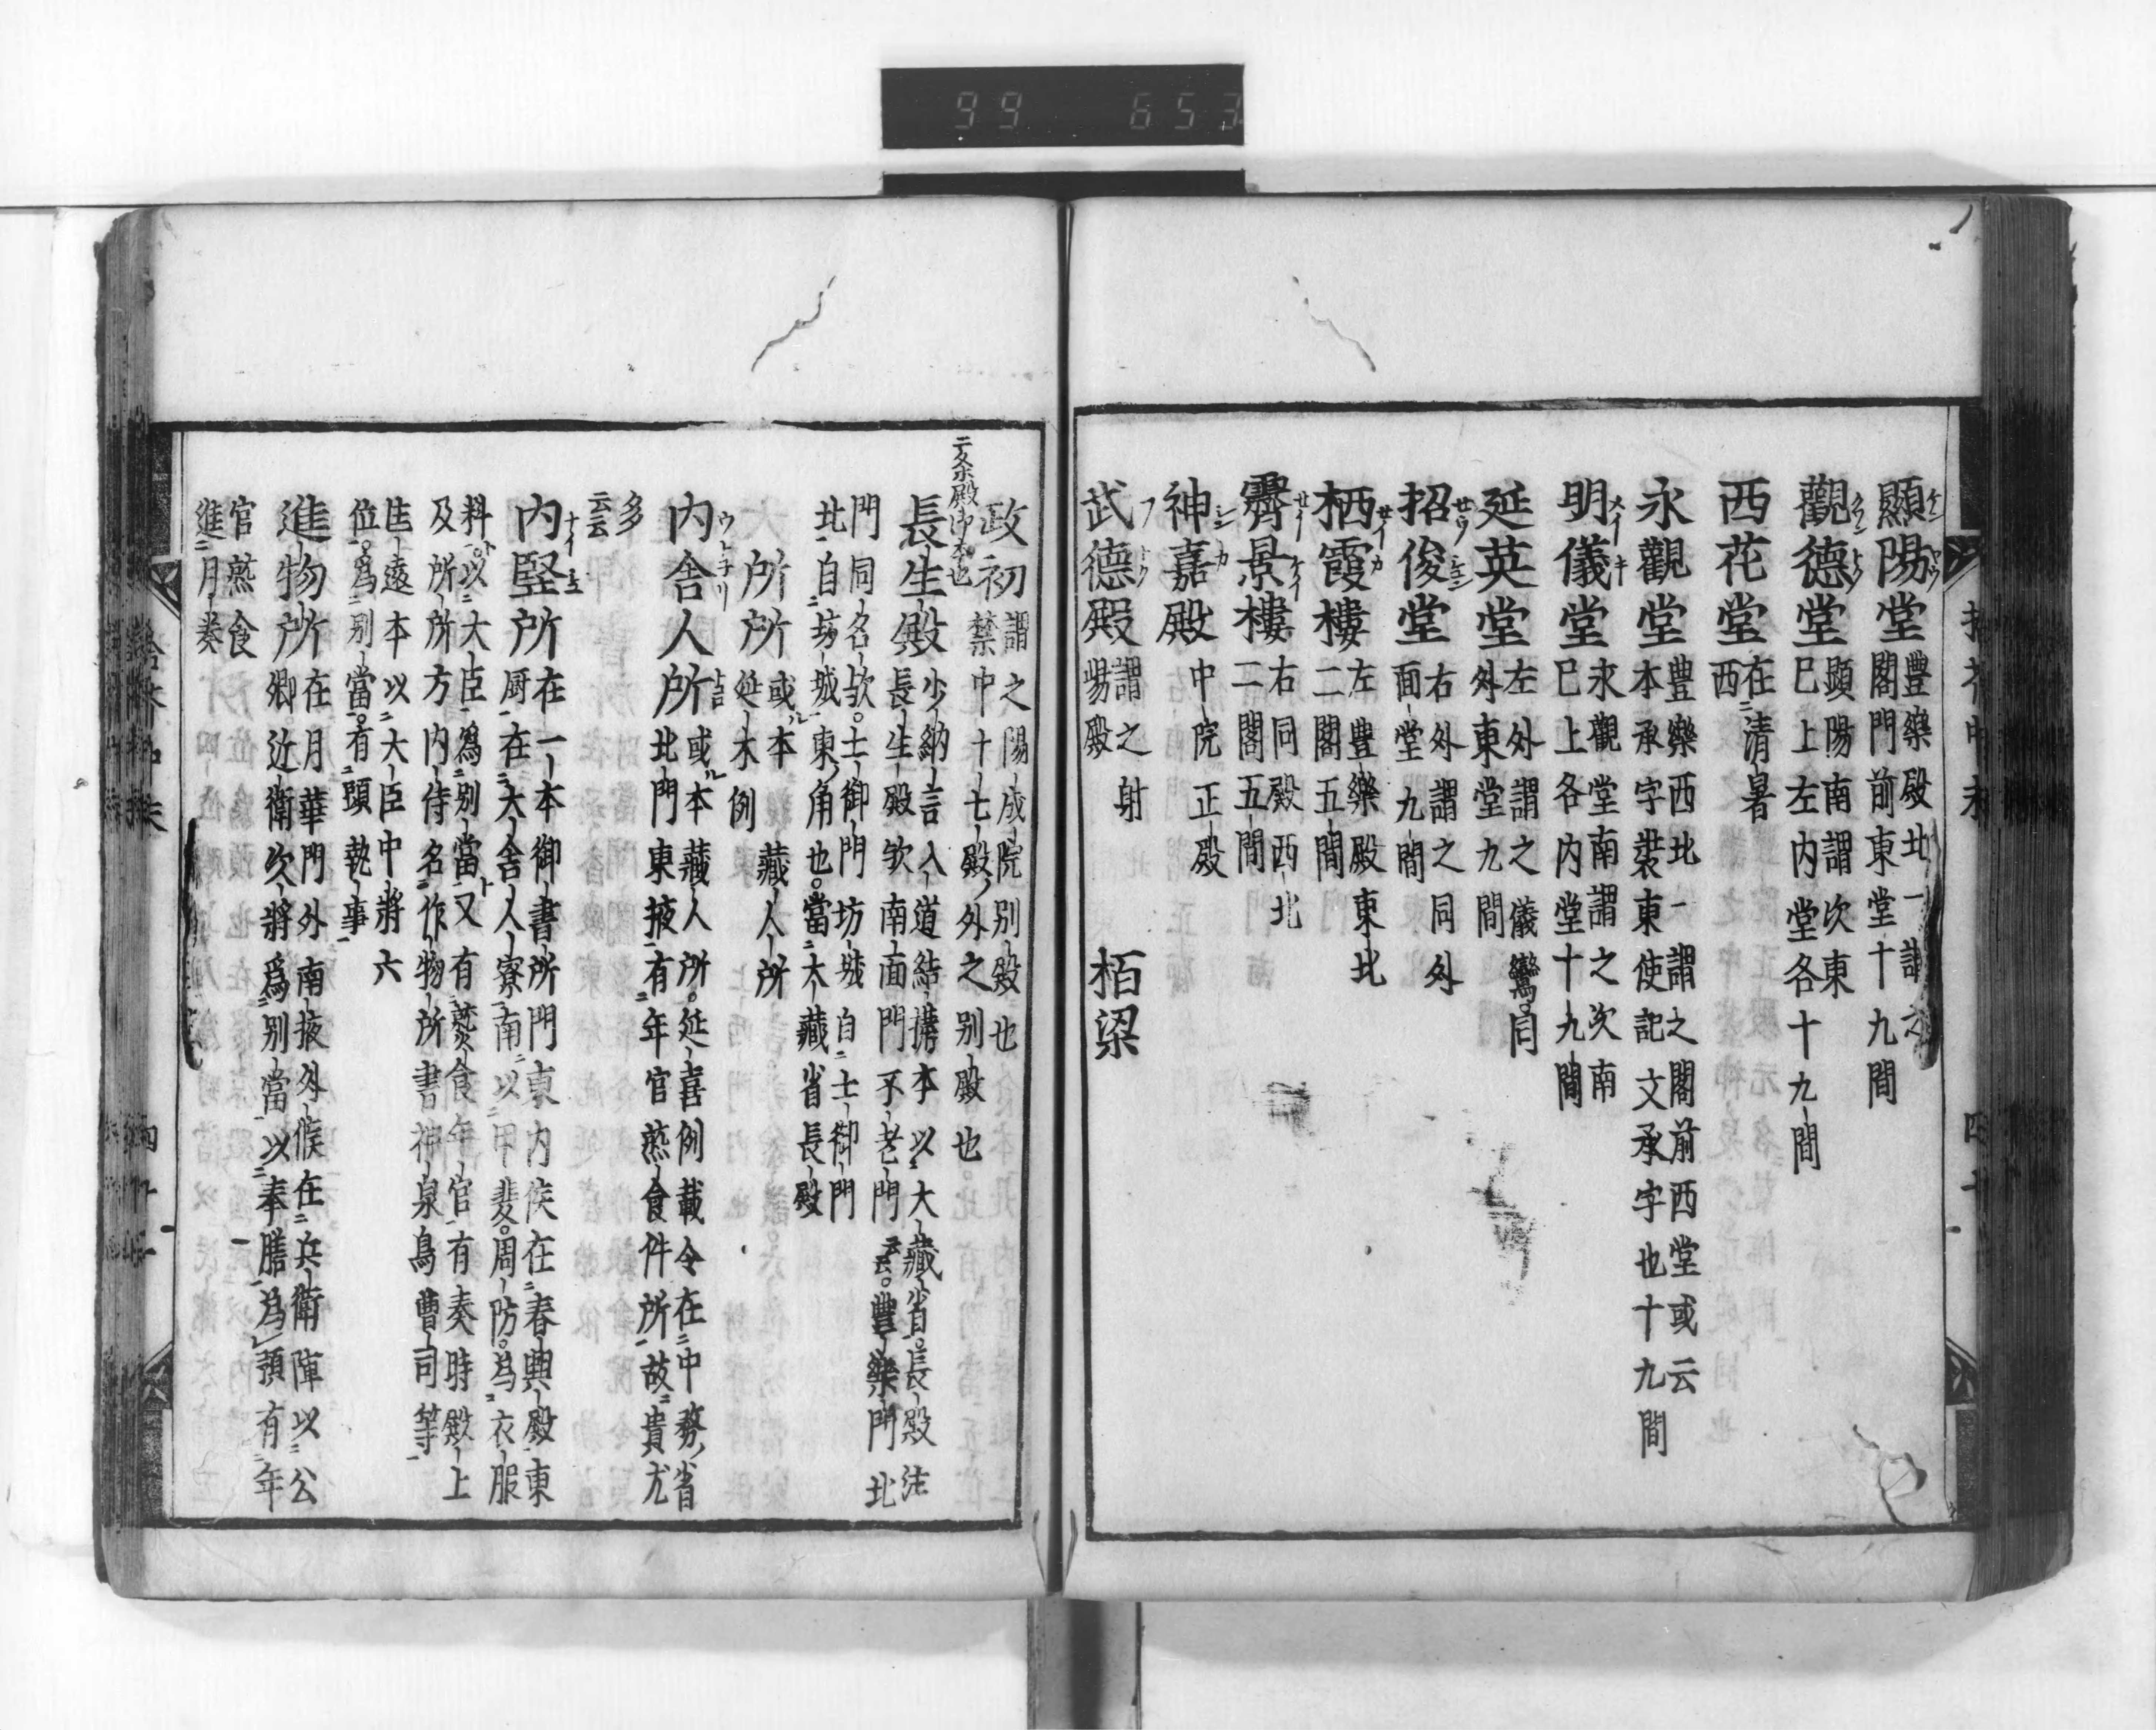 99 653
顯陽堂 豊樂殿北一謂之
閣門前東堂十九間
觀德堂 顕陽南謂次東
巳上左内堂各十九間
西花堂 在清暑
西
永觀堂 豊樂西北一謂之閣前西堂或云
本承字裝束使記文承字也十九間
明儀堂 永觀堂南謂之次南
巳上各内堂十九間
延英堂 左外謂之儀鸞同
外東堂九間
招俊堂 右外謂之同外
面堂九間
栖霞樓 左豊樂殿東北
二閣五間
霽景樓 右同殿西北
二閣五間
神嘉殿 中院正殿
武德殿 謂之射
塲殿
栢梁
政初 謂之陽成院別殿也
禁中十七殿ノ外之別殿也
長生殿 少納言入道結搆本以大藏省長殿注
長生殿欤南面門不老門云云豊樂門北
門同名欤土御門坊城自土御門
北自坊城東ノ角也當大藏省長殿
所所 或本藏人所
延木例
内舎人所 或本藏人所延喜例載令在中務ノ省
北門東掖有年官𤎅食件所故貴尤
多
云云
内竪所 在一本御書所門東内侯在春興殿東
厨在大舎人寮南以甲斐周防為衣服
料以大臣為別當又有𤎅食年官有奏時殿上
及所所方内侍名作物所書神泉鳥曹司等
進物所 在月華門外南掖外候在兵衛陣以公
卿近衛次將為別當以奉膳為預有年
官𤎅食
進月奏